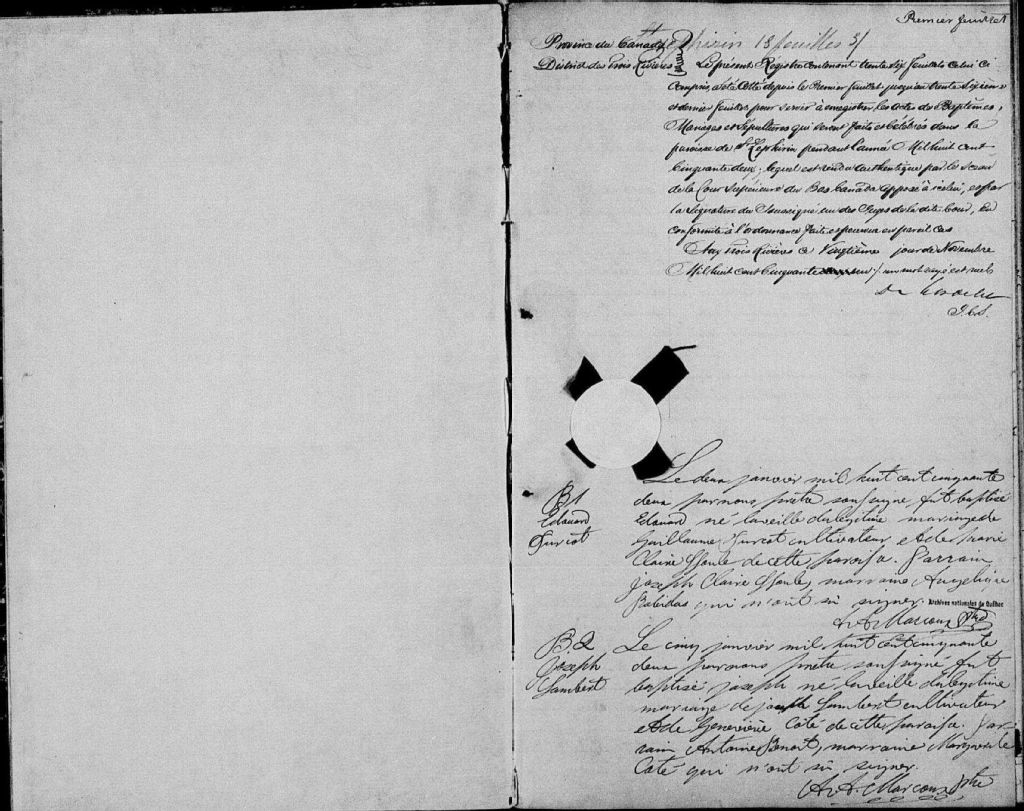 Premier feuillet
Province du Canada St Zéphirin 18 feuilles 3/
District des Trois Rivières Le present Registre contenant trente six feuillets celui ci
compris, a été cotté depuis le Premier feuillet jusqu'au trente sixieme
et dernier feuillet pour servir à enregistrer les actes de Baptêmes,
Mariages et Sépultures qui seront faits et célébrés dans la
paroisse de St Zephirin pendant l'année Mil huit cent
Cinquante deux; lequel est rendu authentique par le sceau
de la Cour Supérieure du Bas Canada apposé à icelui, et par
la Signature du Soussigné un des Juges de la dite Cour, en
conformité à l'ordonnance faite et pourvue en pareil cas
Aux Trois Rivières ce Vingtième jour de Novembre
Mil huit cent Cinquante un / un mot rayé est nul
J.C.S.
Le deux janvier mil huit cent cinquante
B1 deux par nous prêtre soussigné fut baptisé
Edouard Edouard né la veille du légitime mariage de
Turcot Guillaume Turcot cultivateur et de Marie
Claire de cette paroisse. Parrain
joseph Claire marraine Angélique
qui n'ont su signer.
Archives nationales du Québec
A. Marcoux Ptre
B.2 Le cinq janvier mil huit cent cinquante
Joseph deux par nous prêtre soussigné fut
Lambert baptisé joseph né la veille du légitime
mariage de joseph Lambert cultivateur
et de Geneviève Coté de cette paroisse. Par-
rain Antoine marraine Marguerite
Coté qui n'ont su signer.
A. Marcoux Ptre